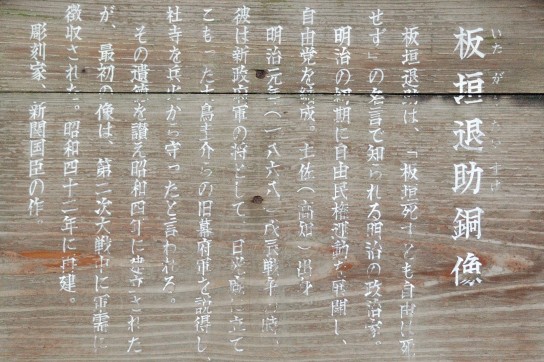 板垣退助銅像
板垣退助は、「板垣死すとも自由は死
せず」の名言で知られる明治の政治家。
明治の初期に自由民権運動を展開し、
自由党を結成。土佐（高知）出身。
明治元年（一八六八）戊辰戦争の時、
彼は新政府軍の将として、日光廟に立て
こもった大鳥圭介らの旧幕府軍を説得し、
社寺を兵火から守ったと言われる。
その遺徳を讃え昭和四年に建立された
が、最初の像は、第二次大戦中に軍需に
徴収された。昭和四十二年に再建。
彫刻家、新関国臣の作。